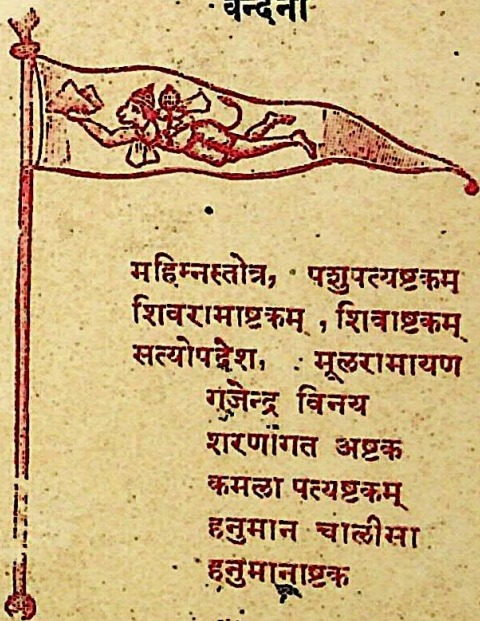 वन्दना
महिम्नस्तोत्र, पशुपत्यष्टकम्
शिवरामाष्टकम्, शिवाष्टकम्
सत्योपदेश, मूलरामायण
गजेन्द्र विनय
शरणागत अष्टक
कमला पत्यष्टकम्
हनुमान चालीसा
हनुमानाष्टक